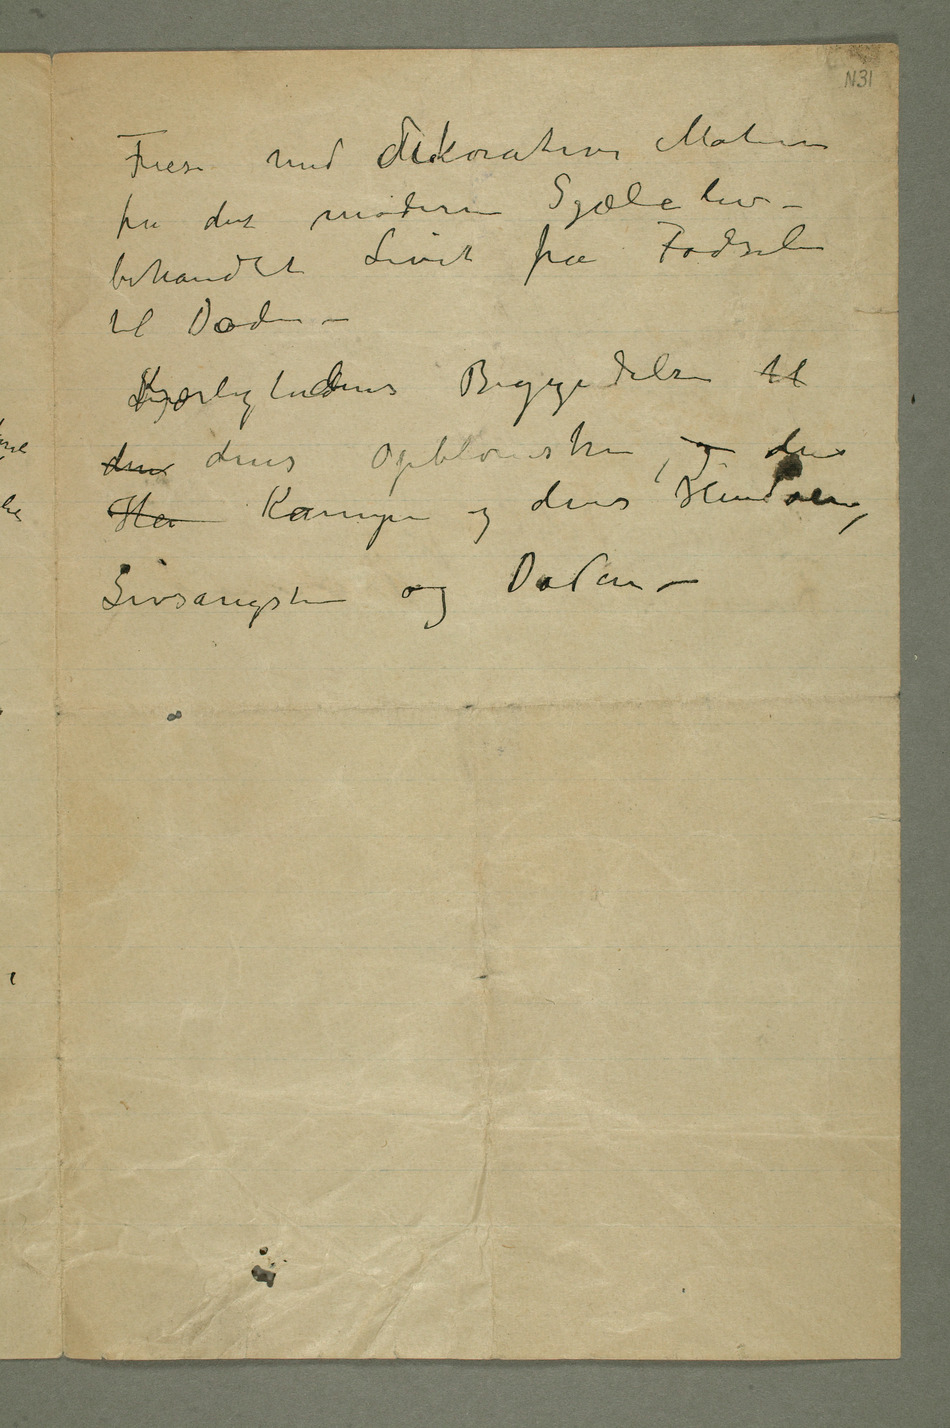 N31
Friese med dekorative Motiver
fra det moderne Sjæleliv –
behandlet Livet fra Fødselen
til Døden –
Kjærlighedens Begyndelse til
den dens Opblomstren, og den
Her Kampe og dens Henden,
Livsangsten og Døden –